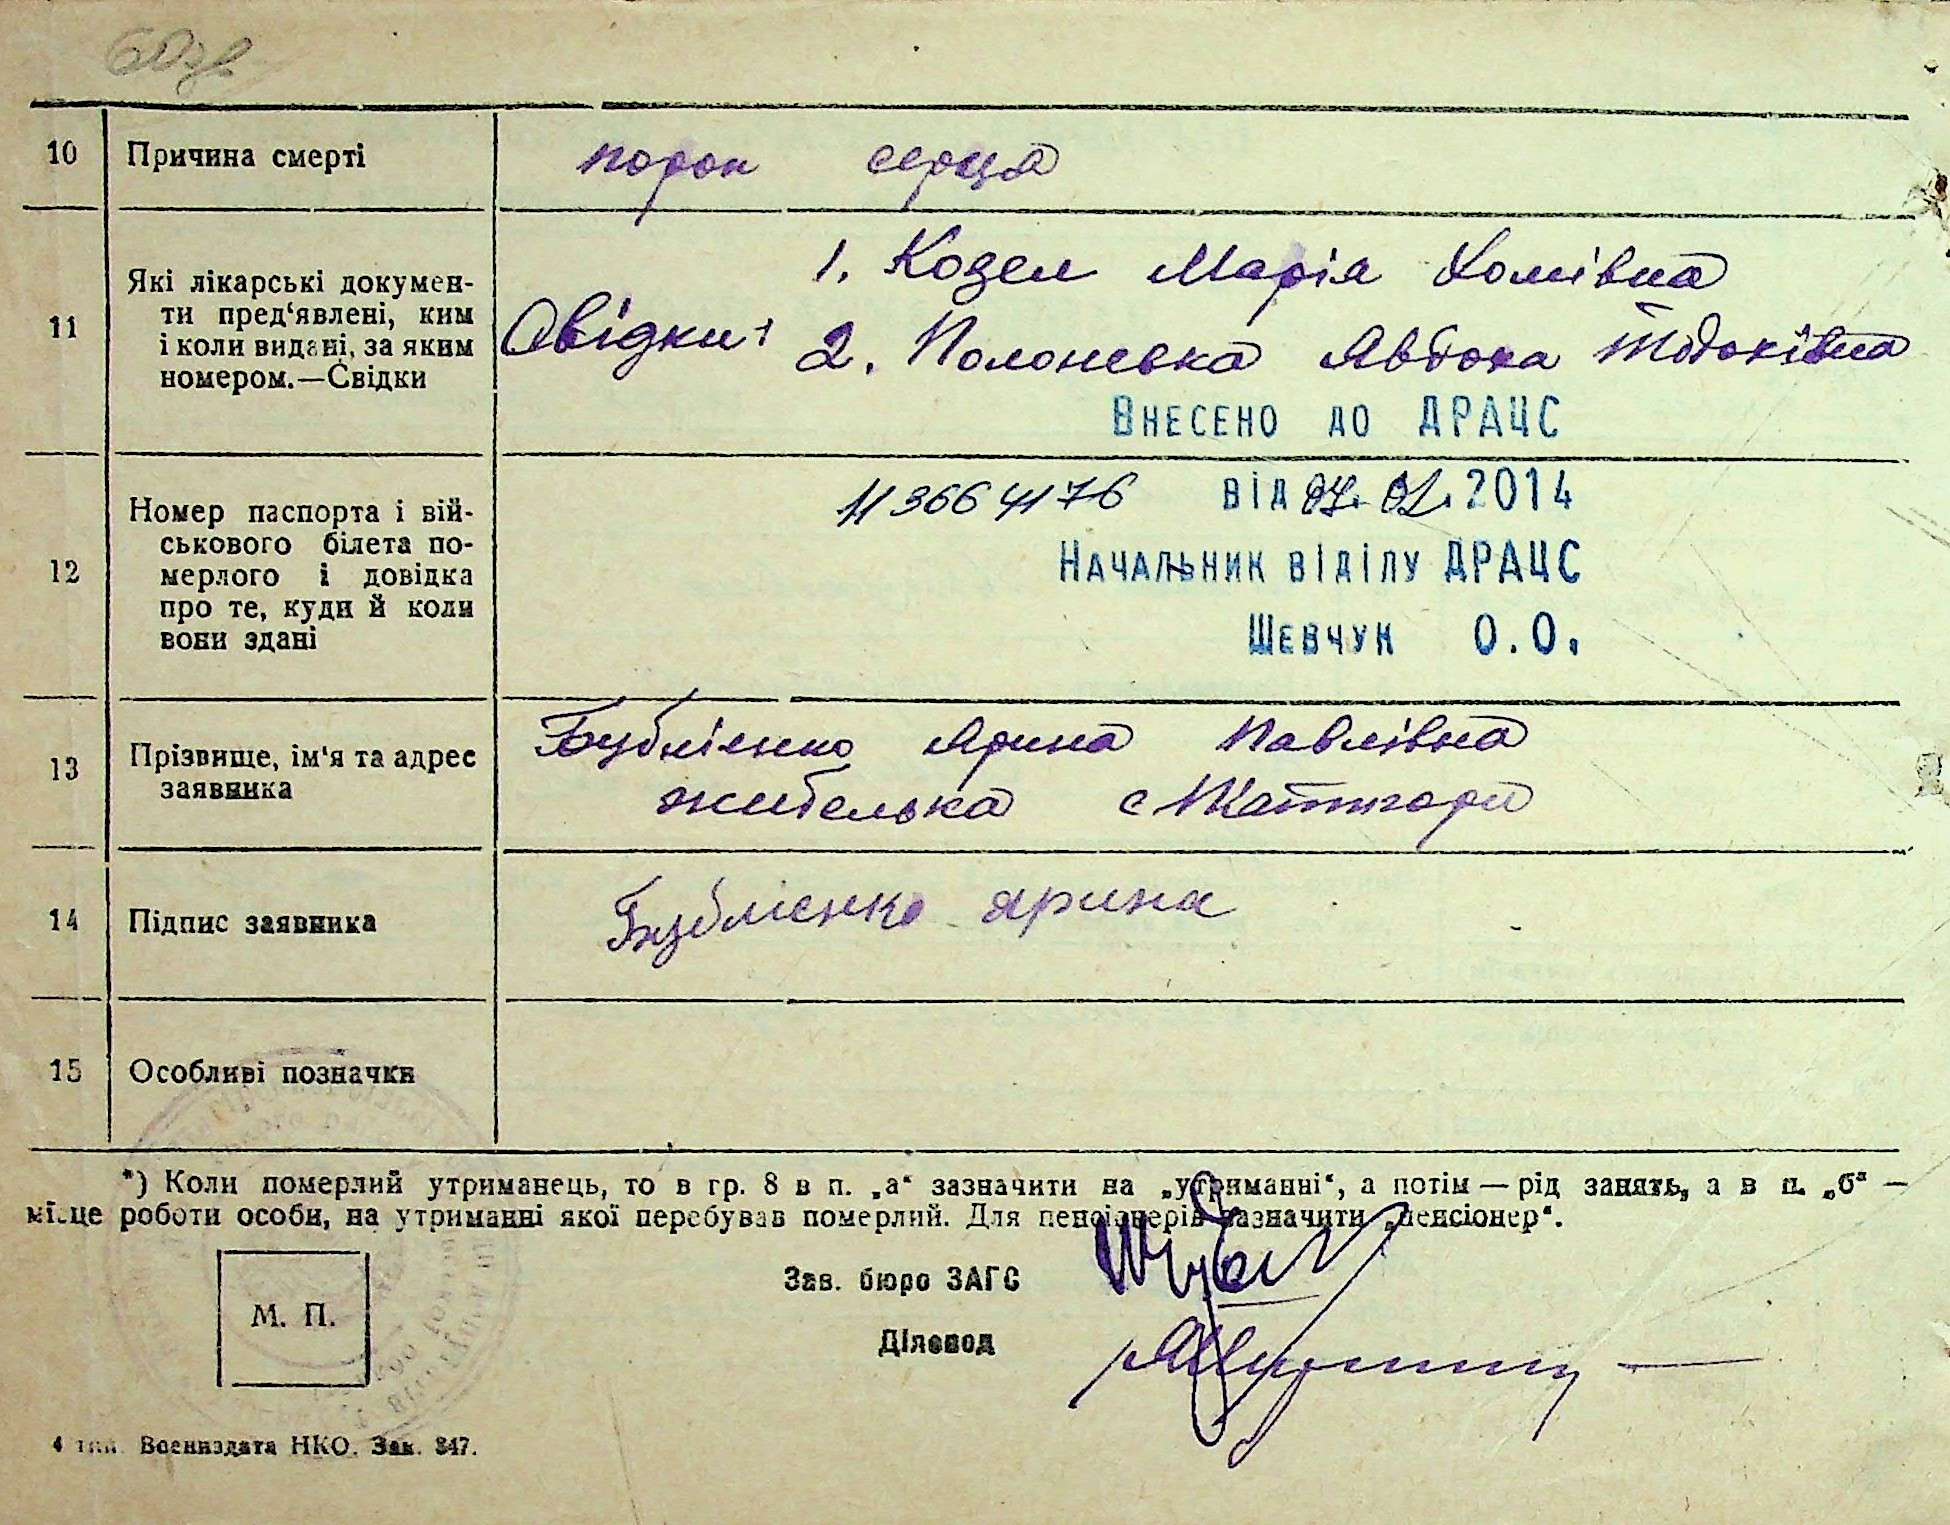 10 Причина смерті порок серца
11 Які лікарські докумен-
ти пред‘явлені, ким
і коли видані, за яким
номером.—Свідки
Свідки: 1. Козел Марія Хомівна
2. Полоневка Явдоха
Внесено до ДРАЦС
12 Номер паспорта і вій-
ськового білета по-
мерлого і довідка
про те, куди й коли
вони здані
113664176 від 2014
Начальник відділу ДРАЦС
Шевчук О.О.
13 Прізвище, ім‘я та адрес
заявника
Бубліенко Ярина Павлівна
жителька с
14 Підпис заявника Бублієнко Ярина
15 Особливі позначки
*) Коли померлий утриманець, то в гр. 8 в п. „а“ зазначити на „утриманні“, а потім — рід занять, а в п. „б“ —
місце роботи особи, на утриманні якої перебував померлий. Для пенсіонерів зазначити „пенсіонер“.
М. П.
Зав. бюро ЗАГС
Діловод
4 тип. Воениздата НКО. Зак. 347.